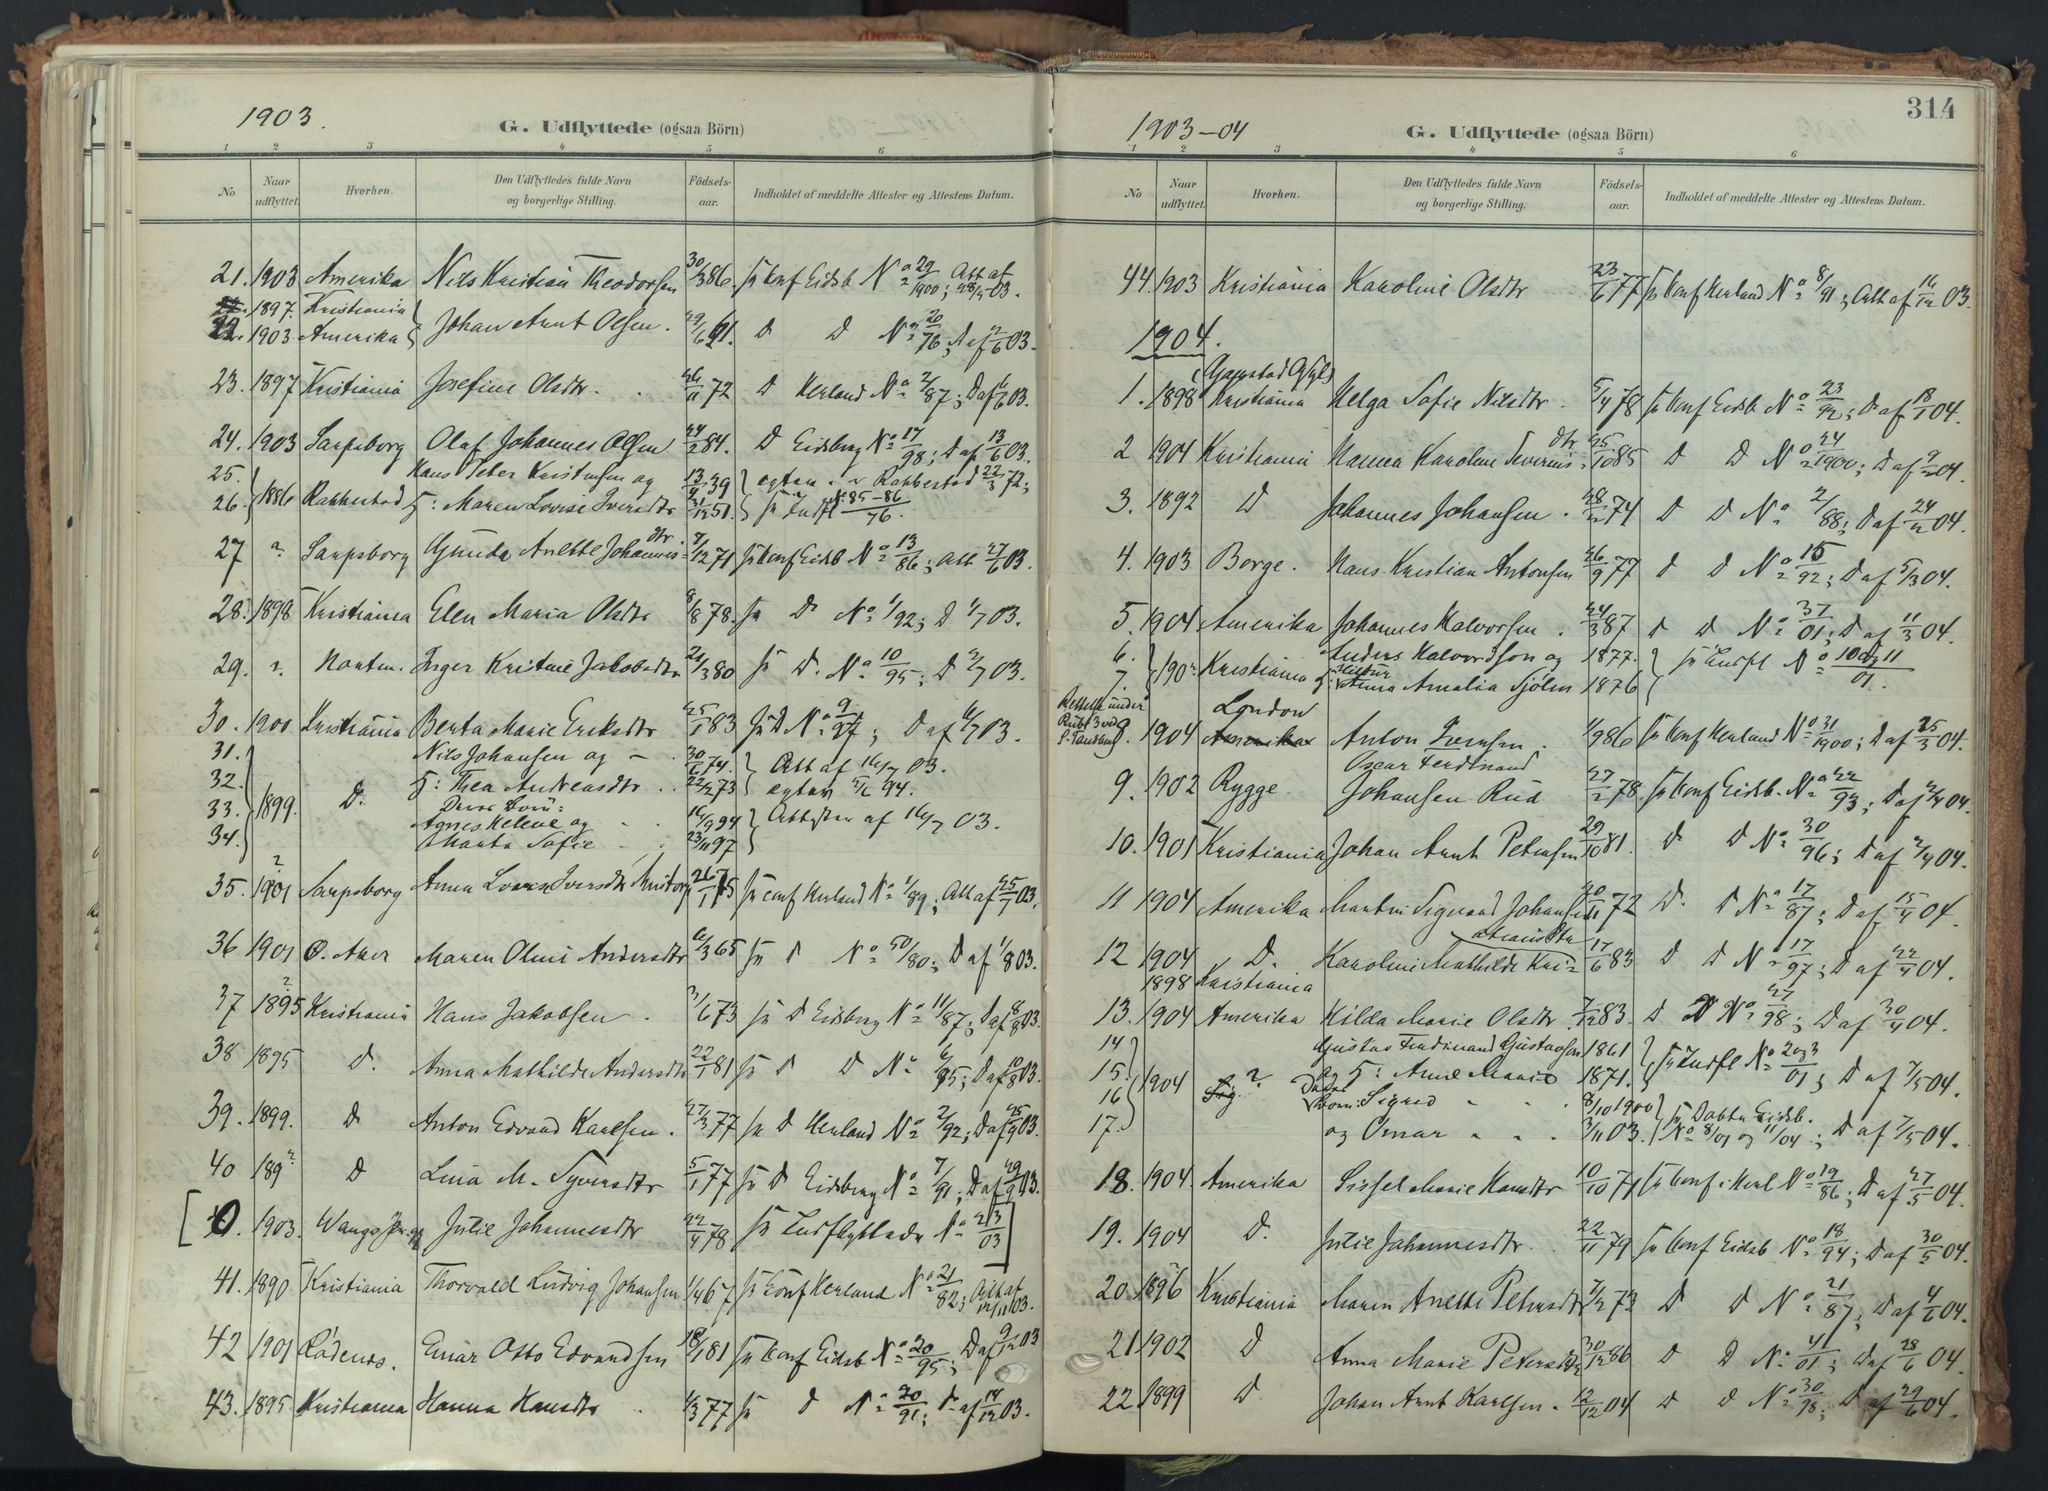 1903.
G. Udflyttede (ogsaa Börn)
1 2 3 4 5 6
No. Naar udflyttet. Hvorhen. Den Udflyttedes fulde Navn og borgerlige Stilling. Födsels-aar. Indholdet af meddelte Attester og Attestens Datum.
21. 1903 Amerika Nils Kristian Theodorsen 30/3 86. Konf Eidsb No 29/1900; Att af 03.
1897. Kristiania
22. 1903 Amerika Johan Arnt Olsen. 29/6 61. D D No 20/76; D af 03.
23. 1897 Kristiania Josefine Olsdtr. 26/11 72 D Herland No 2/87; D af 03.
24. 1903 Sarpsborg Olaf Johannes Olsen 24/2 84. D Eidsberg No 17/98; D af 13/6 03.
25. Hans Peter Kristensen og 13/4 39
26. 1886 Rakkestad H: Maren Lovise Iversdtr 31/12 51. Rakkestad 22/3 72; No 85-86/76.
27 ? Sarpsborg Gunda Anette Johannesdtr. 7/12 71 Konf Eidsb No 13/86; Att. 27/6 03.
28. 1898 Kristiania Elen Maria Olsdtr 8/8 78. D. No 1/92; D 1/7 03.
29. ? Inger Kristine Jakobsdtr 80 D. No 10/95; D 2/7 03.
30. 1900 Kristiania Berta Marie Eriksdtr 25/1 83 D No 9/97; D af 03.
31. Nils Johansen og 30/6 74. Att af 16/7 03.
32. H: Thea Andreasdtr. 22/2 73 94.
33. 1899. D. Deres Börn: Agnes Helene og 16/9 94 Attester af 16/7 03.
34. Marta Sofie 23/11 97
35. 1901 Sarpsborg Anna Iversdtr 26/1 Konf Herland No 1/89; Att af 25/7 03.
36 1901 Ö. Aker Maren Oline Andersdtr 6/3 65 D No 50/80; D af 1/8 03.
37 1895 Kristiania Hans Jakobsen. 3/6 73 D Eidsberg No 11/87; D af 8/8 03.
38 1895 D. Anna Mathilde Andersdtr 22/1 81 D D No 6/95; D af 10/8 03.
39. 1899. D Anton Edvard Karlsen. 27/3 77 D Herland No 2/92; D af 25/9 03.
40 189? D Lina M. Syversdtr 5/1 77 D Eidsberg No 7/91; D af 29/9 03.
[40. 1903. Julie Johannesdtr 22/4 78 Indflyttede No 213/03]
41. 1890 Kristiania Thorvald Ludvig Johansen 1/4 67 Konf Herland No 21/82; Att af 12/11 03.
42 1901 Rödenæs. Einar Otto Edvardsen 18/1 81 Konf Eidsb No 20/95; D af 9/12 03
43. 1895 Kristiania Hanna Hansdtr 1/3 77 D No 20/91; D af 14/12 03.
1903-04
G. Udflyttede (ogsaa Börn)
314
1 2 3 4 5 6
No Naar udflyttet. Hvorhen. Den Udflyttedes fulde Navn og borgerlige Stilling. Födsels-aar. Indholdet af meddelte Attester og Attestens Datum.
44. 1903 Kristiania Karoline Olsdtr 23/6 77 Konf Herland No 8/91; Att af 16/12 03.
1904.
1. 1898 Kristiania Helga Sofie Nilsdtr. 5/4 78 Konf Eidsb No 23/92; D af 18/1 04.
2 1904 Kristiania Hanna Karoline Severinsdtr 25/10 85 D D No 24/1900; D af 9/2 04.
3. 1892 D Johannes Johansen. 28/2 74 D D No 2/88; D af 24/2 04.
4. 1903 Borge. Hans Kristian Antonsen 26/9 77 D D No 15/92; D af 5/3 04.
5. 1904 Amerika Johannes Halvorsen. 24/3 87 D D No 37/01; D af 11/3 04.
6. Anders Halvordson og 1877.
7. 190? Kristiania Anna Amalia Sjölin 1876 Indfl No 10 og 11/01.
London
8. 1904 Amerika Anton Iversen. 1/9 86 Konf Herland No 31/1900; D af 25/3 04.
Oscar Ferdinand
9. 1902 Rygge Johansen Rud 27/2 78. Konf Eidsb. No 22/93; D af 2/4 04.
10. 1901 Kristiania Johan Arnt Petersen 29/10 81. D D No 30/96; D af 7/4 04.
11 1904 Amerika Martin Sigvard Johansen 20/11 72 D. D No 17/87; D af 15/4 04.
12 1904 D. Karoline Mathilde Kristiansdtr 17/6 83 D D No 17/97; D af 22/4 04.
1898 Kristiania
13. 1904 Amerika Hilda Marie Olsdtr. 7/12 83. D No 27/98; D af 30/4 04.
14 Gustav Ferdinand Gustavsen 1861
15. 1904 ? og H: Marie 1871. Indfl No 2 og 3/01; D af 7/5 04.
16 Deres Börn: Sigrid 8/10 1900 Döbte Eidsb.
17. og Omar 3/11 03. No 8/01 og 11/04; D af 7/5 04.
18. 1904. Amerika Sissel Marie Hansdtr 10/10 71 Konf. Herl No 19/86; D af 27/5 04.
19. 1904 D. Julie Johannesdtr. 22/11 79 Konf Eidsb No 18/94; D af 30/5 04.
20 1896 Kristiania Maren Anette Petersdtr 7/2 73 D D No 21/87; D af 4/6 04.
21 1902 D Anna Marie Petersdtr 30/12 86 D D No 41/01; D af 28/6 04.
22 1899 D. Johan Arnt Karlsen. 12/12 04 D D No 30/98; D. af 29/6 04.